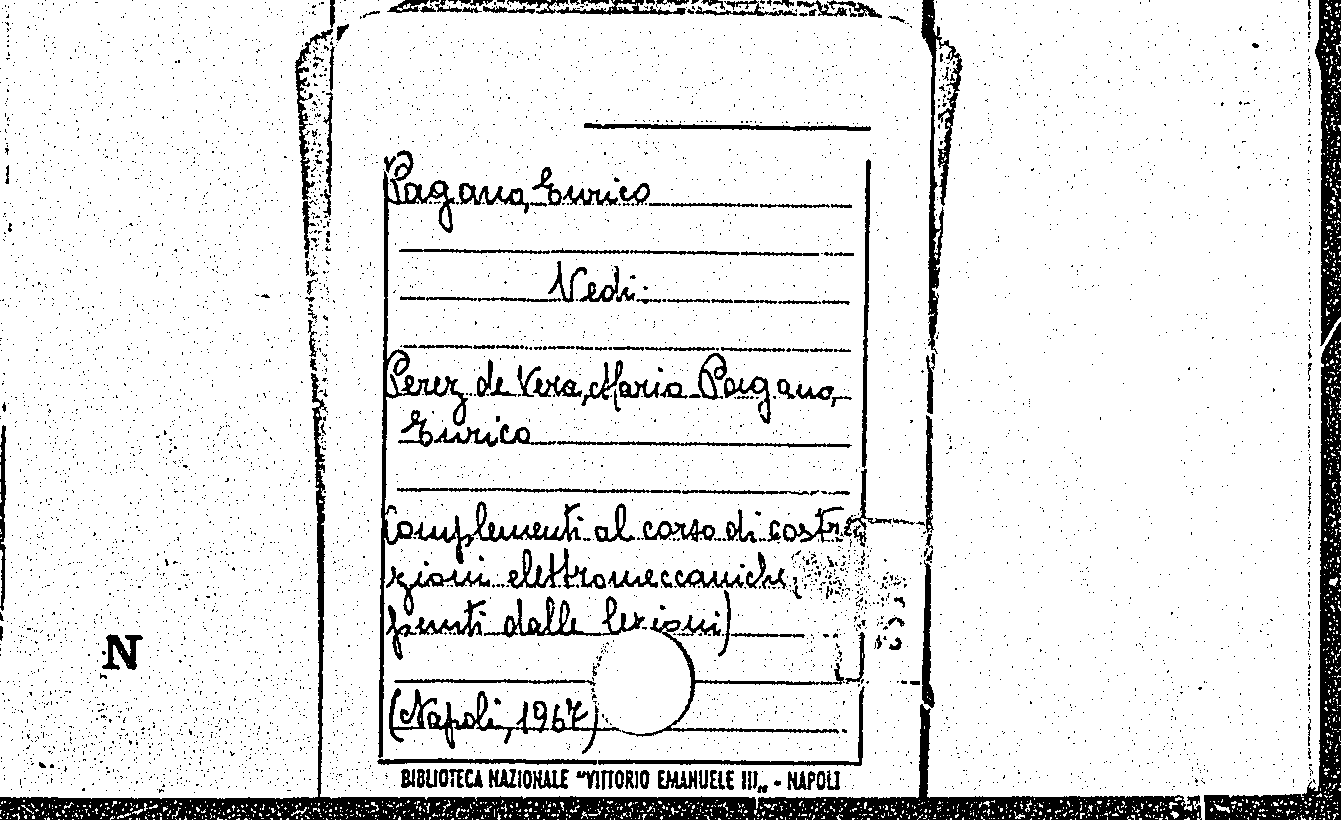 Pagano, Enrico
Vedi:
Perez de Vera, Maria-Pagano,
Enrico
Complementi al corso di costru
zioni elettromeccaniche
punti dalle lezioni)
(Napoli, 1967)
N
BIBLIOTECA NAZIONALE "VITTORIO EMANUELE III„ - NAPOLI